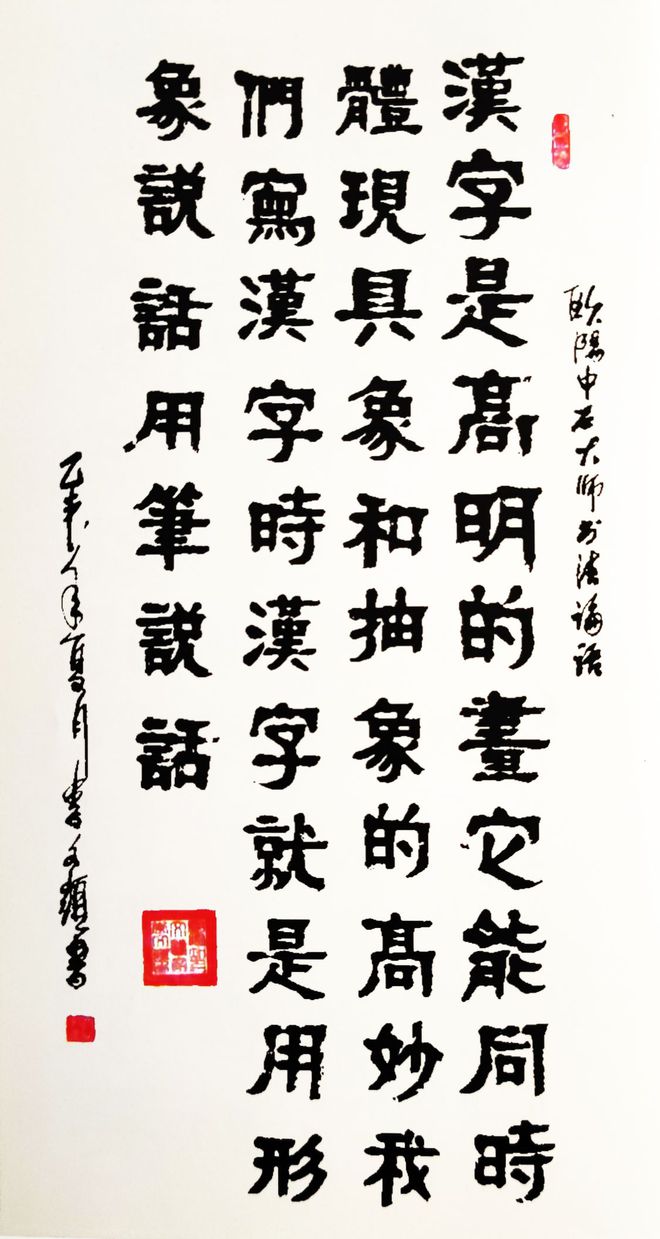 欧陽中石大师书法論語
漢字是髙明的畫它能同時
體現具象和抽象的髙妙我
們寫漢字時漢字就是用形
象説話用筆説話
乙未年夏月李書